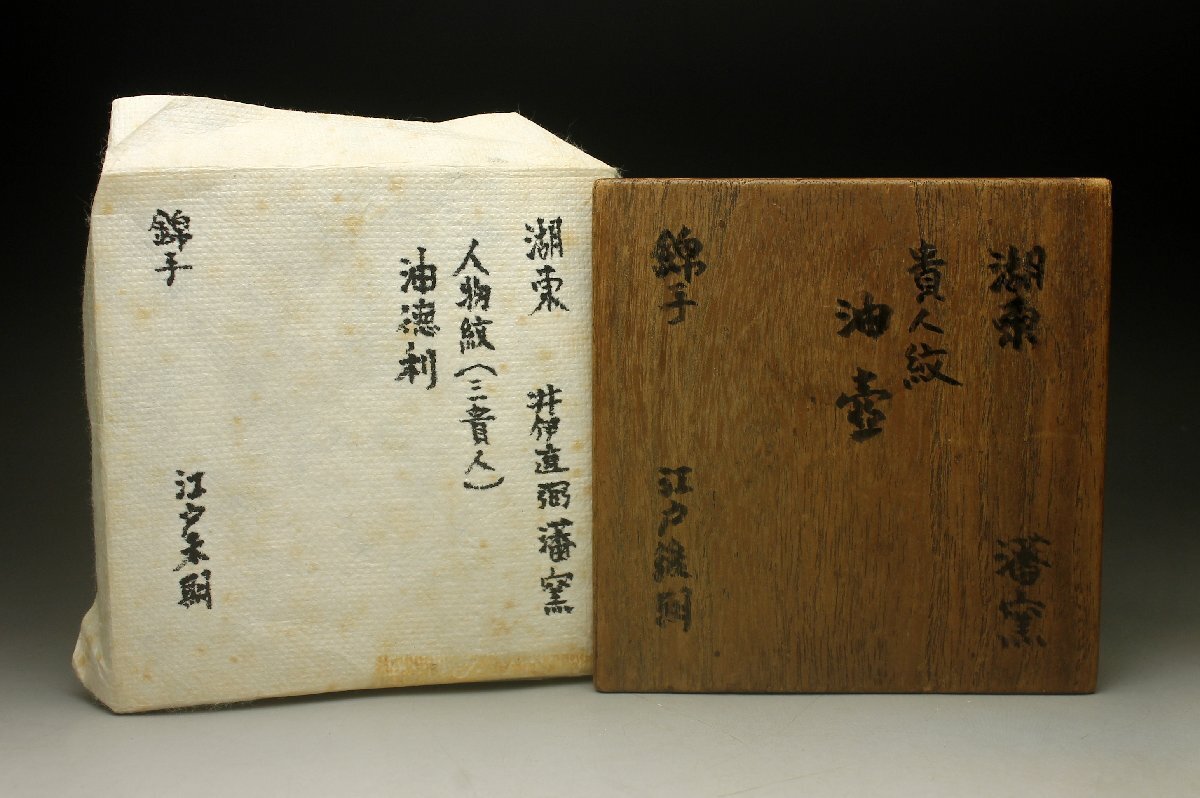 湖東 井伊直弼藩窯
人物紋(三貴人)
油徳利
錦手
江戸末期
湖東 藩窯
貴人紋
油壺
錦手
江戸後期